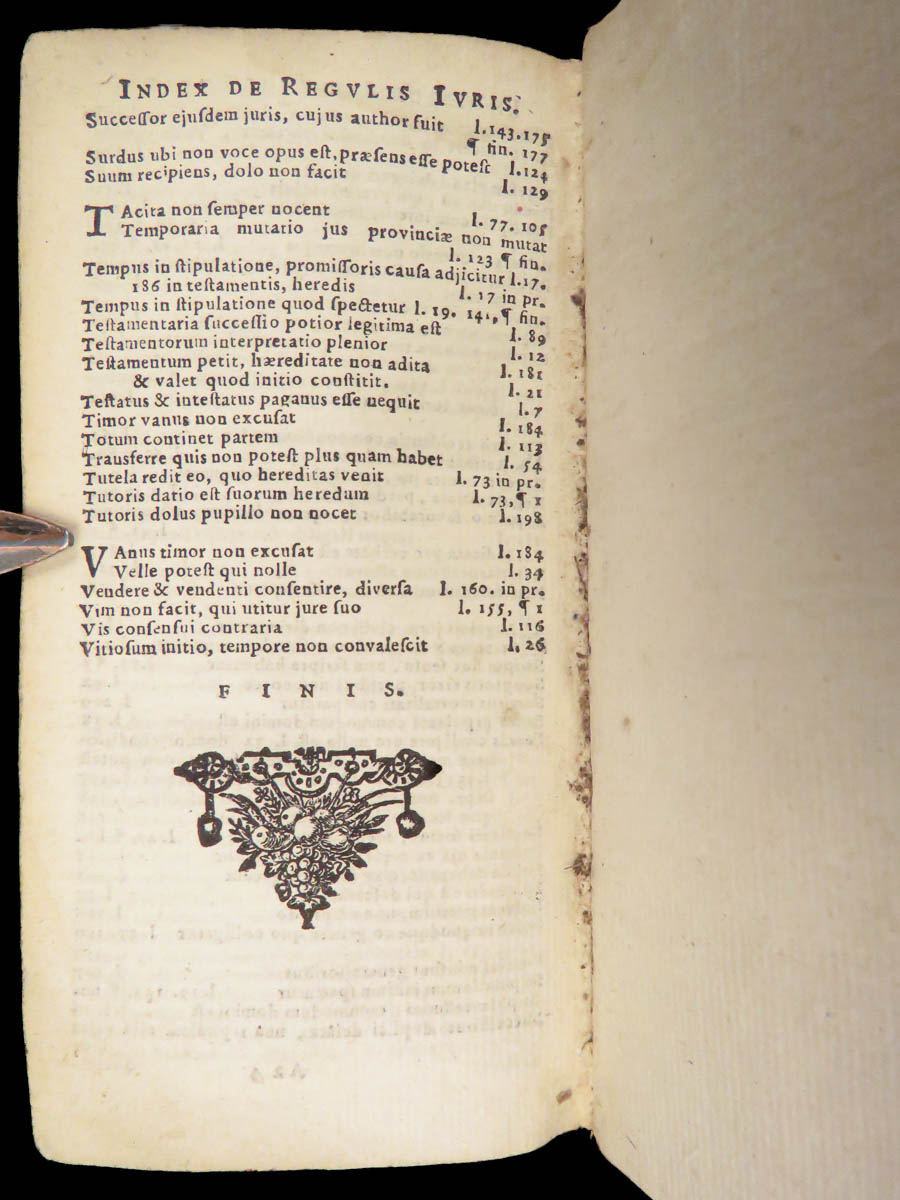 INDEX DE REGVLIS IVRIS.
Succeſſor ejuſdem juris, cujus author fuit l.143.175
¶ fin. 177
Surdus ubi non voce opus eſt, præſens eſſe poteſt l.124
Suum recipiens, dolo non facit l. 129
TAcita non ſemper nocent l. 77. 105
Temporaria mutatio jus provinciæ non mutat
l. 123 ¶ fin.
Tempus in ſtipulatione, promiſſoris cauſa adjicitur l.17.
186 in teſtamentis, heredis l. 17 in pr.
Tempus in ſtipulatione quod ſpectetur l. 19. 141,¶ fin.
Teſtamentaria ſucceſſio potior legitima eſt l. 89
Teſtamentorum interpretatio plenior l. 12
Teſtamentum petit, hæreditate non adita l. 181
& valet quod initio conſtitit. l. 21
Teſtatus & inteſtatus paganus eſſe nequit l. 7
Timor vanus non excuſat l. 184
Totum continet partem l. 113
Transferre quis non poteſt plus quam habet l. 54
Tutela redit eo, quo hereditas venit l. 73 in pr.
Tutoris datio eſt ſuorum heredum l. 73,¶ 1
Tutoris dolus pupillo non nocet l. 198
VAnus timor non excuſat l. 184
Velle poteſt qui nolle l. 34
Vendere & vendenti conſentire, diverſa l. 160. in pr.
Vim non facit, qui utitur jure ſuo l. 155, ¶ 1
Vis conſenſui contraria l. 116
Vitioſum initio, tempore non convaleſcit l. 26
F I N I S.